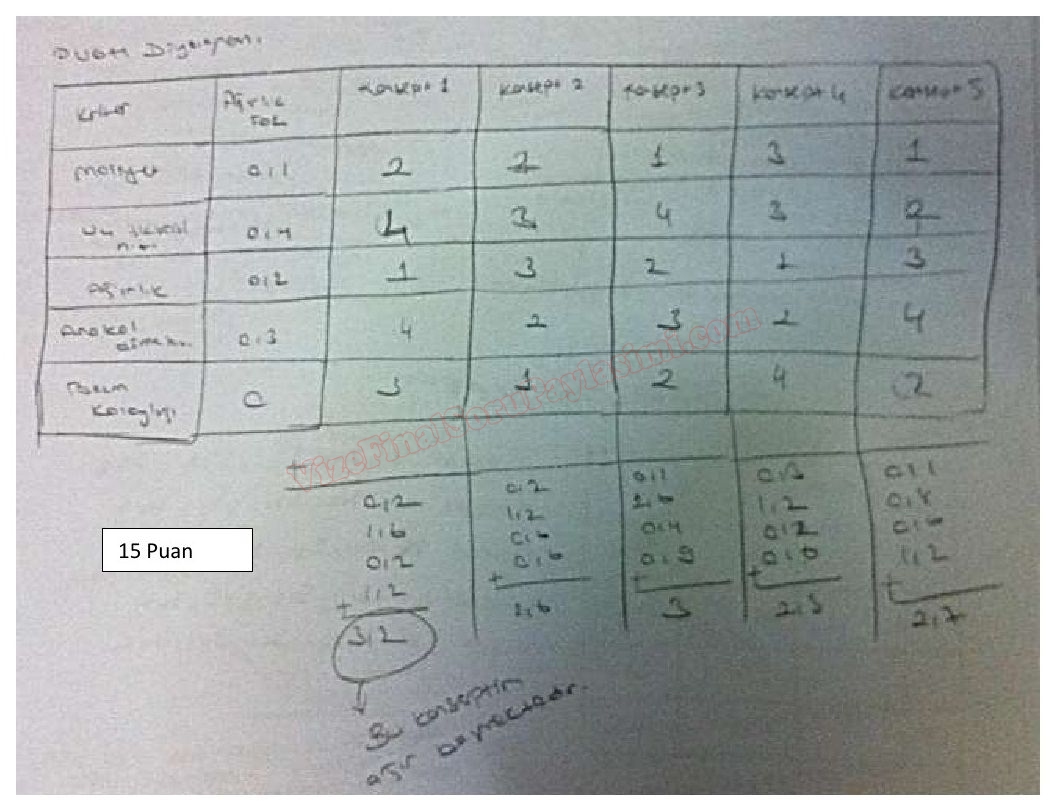 PUGH Diyagramı.
Kriter Ağırlık Konsept 1 Konsept 2 Konsept 3 Konsept 4 Konsept 5
Maliyet 0,1 2 2 1 3 1
0,4 4 3 4 3 2
Ağırlık 0,2 1 3 2 1 3
0,3 4 2 3 2 4
kolaylığı 0 3 1 2 4 2
VizeFinal
0,2 0,2 0,1 0,3 0,1
1,6 1,2 1,6 1,2 0,8
0,2 0,6 0,4 0,2 0,6
1,2 0,6 0,9 0,6 1,2
+ + + + +
3,2 2,6 3 2,3 2,7
15 Puan
Bu konseptin